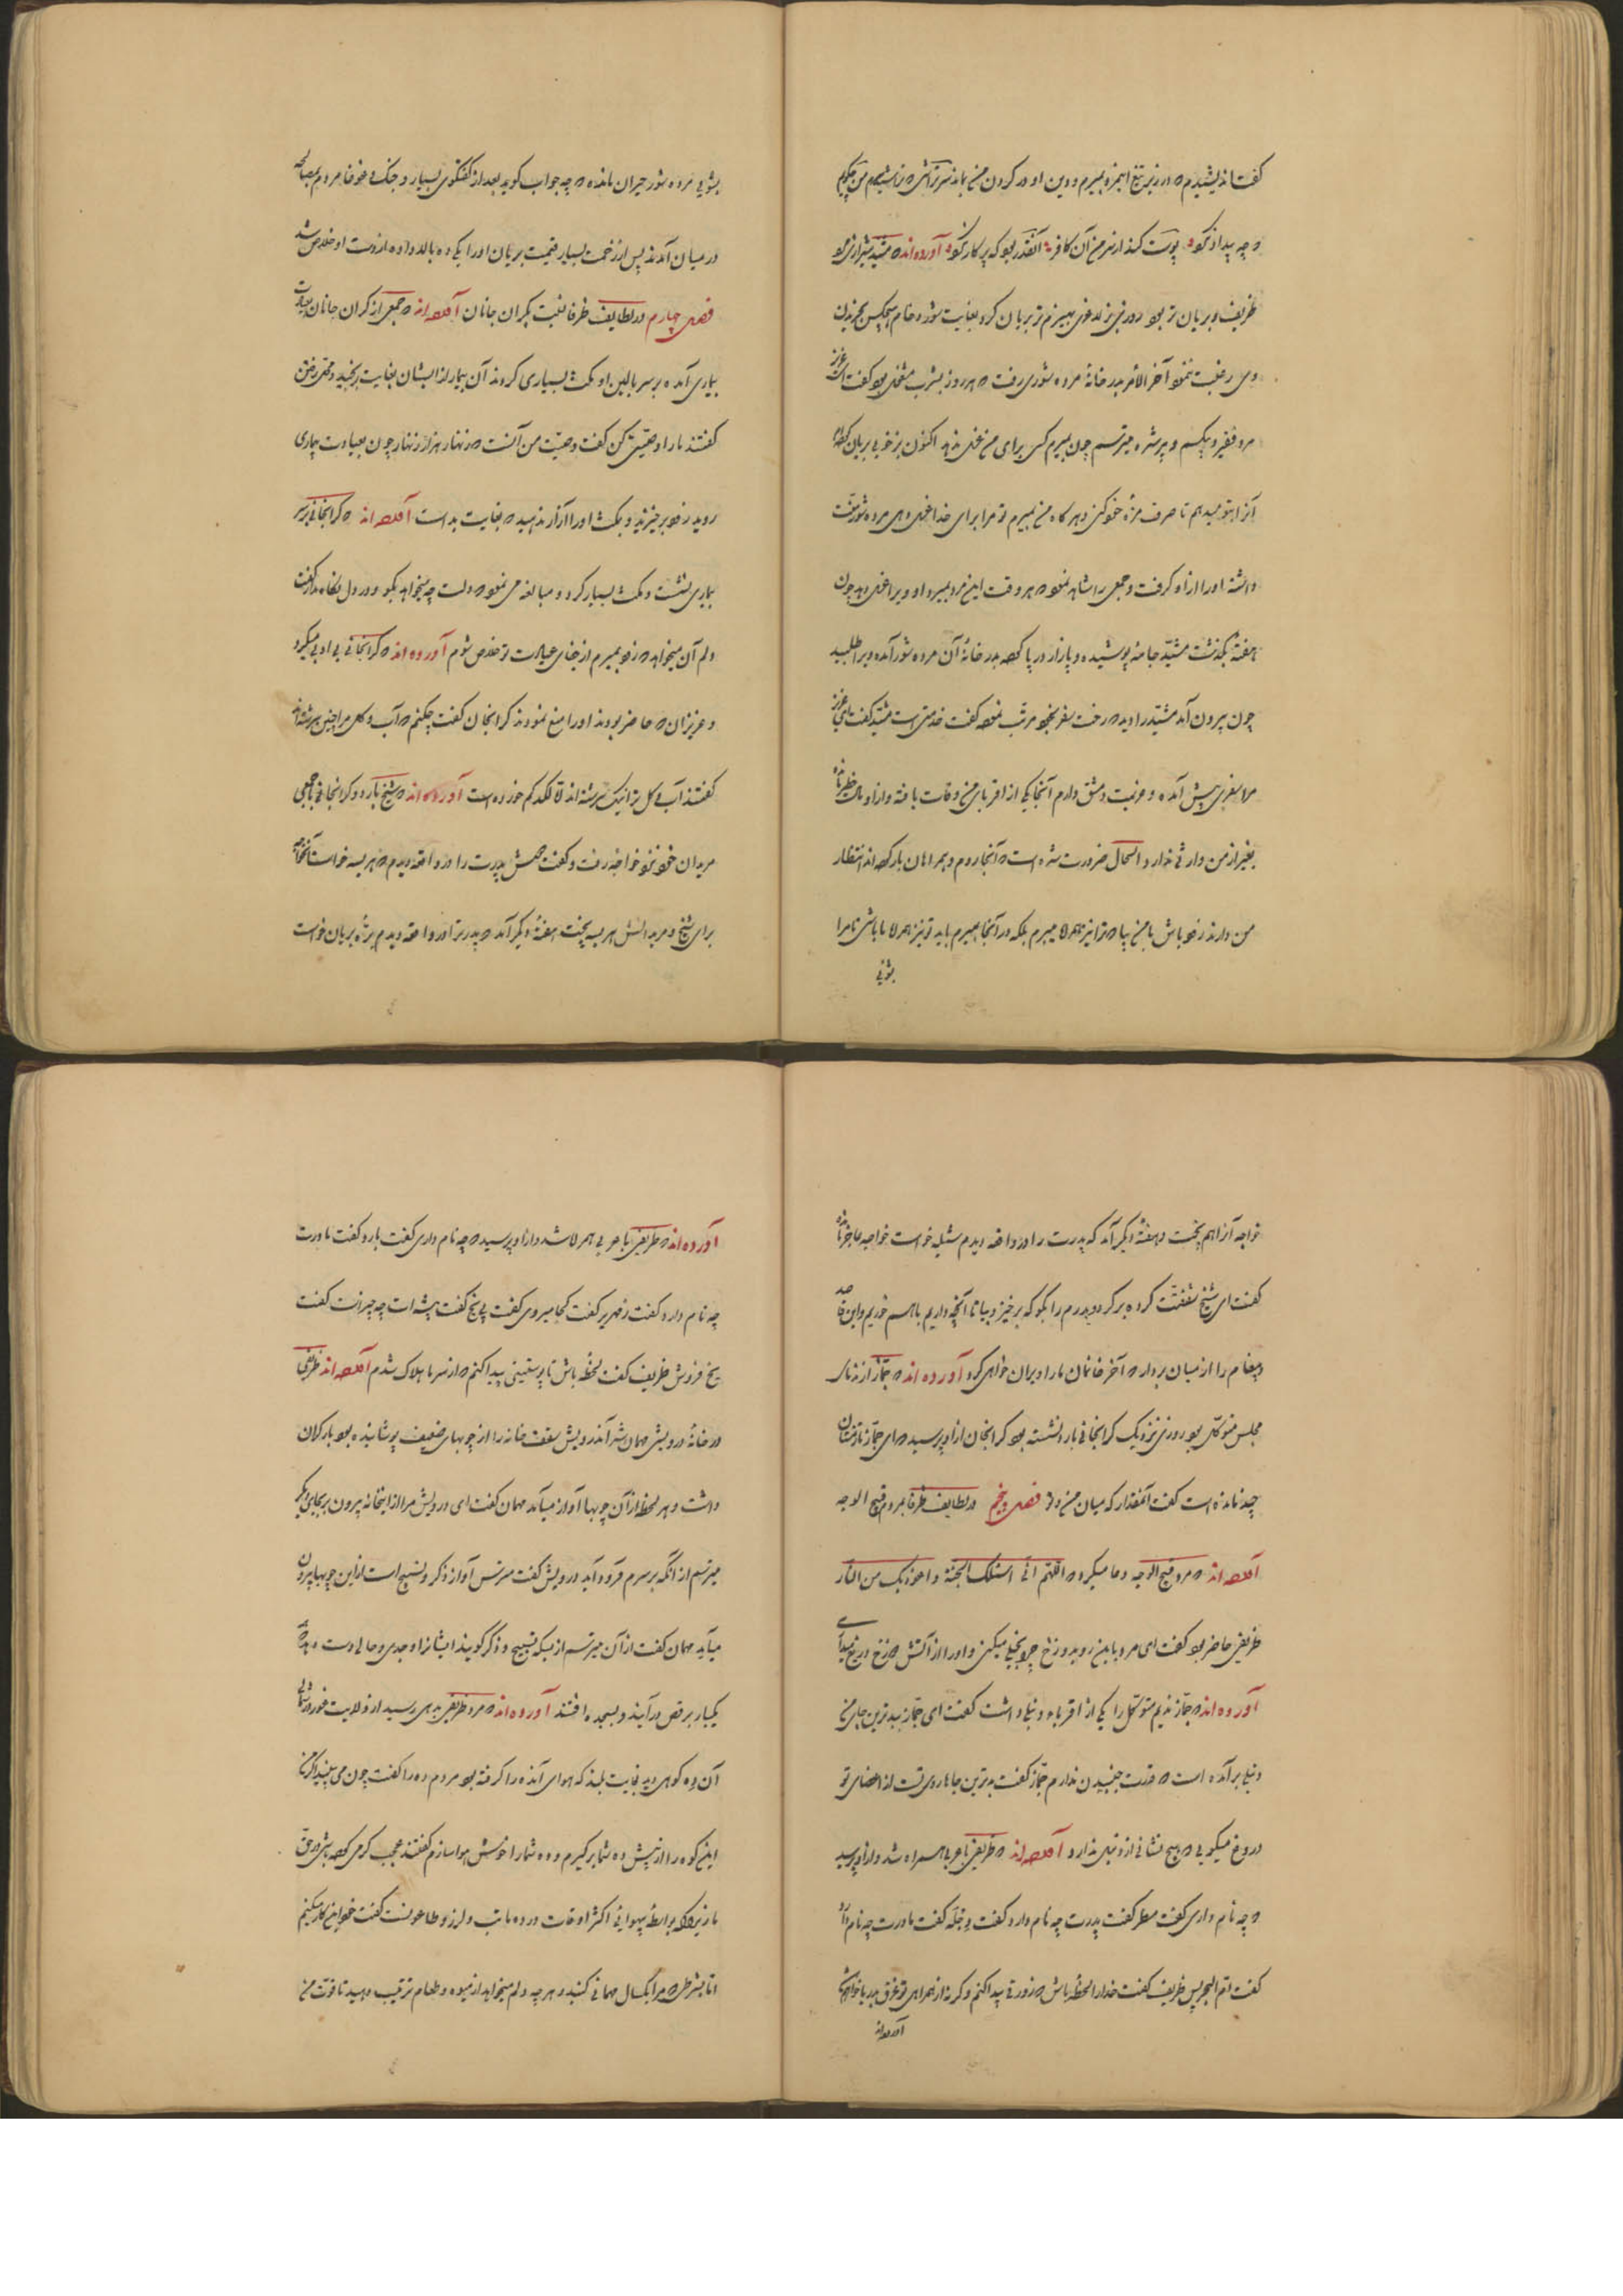 گفت اندیشیدم که در زیر تیغ او بمیرم و دین او در گردن من بماند
و چه پیدا از کو پوست کند از سر من آن کافر آنقدر بود که پر کار نکو آورده اند که مشید شیرازی مرد
ظریف و بریان تر بود روزی بز لاغری بی هیزم تر بریان کرد بغایت شور و خام هیچکس بخریدن
وی رغبت ننمود آخر الامر بدر خانهٔ مرده شوری رفت که هر روز بشرب مشغول بود گفت ای عزیز
مرد فقیر و بیکسم و پیر شده میترسم چون بمیرم کسی برای من غسل ندهد اکنون بز خوبی بریان کرده
آنرا بتو میدهم تا صرف مزهٔ خود کنی و هرگاه من بمیرم تو مرا برای خدا غسل دهی مرده شور منت
داشته او را ازو گرفت و جمعی را شاهد نمود که هر وقت این مرد بمیرد او ویرا غسل دهد چون
هفتهٔ بگذشت مشید جامه پوشیده و پا از در پا کرده بدر خانهٔ آن مرده شور آمده ویرا طلبید
چون بیرون آمد مشید را دید که رخت سفر بخود مرتب نموده گفت خدمتی است مشید گفت بلی ای عزیز
مرا سفری پیش آمده و عزیمت دمشق دارم آنجا یکی از اقربای من وفات یافته و ازو مالی خطیر مانده
بغیر از من وارثی ندارد و الحال ضرورت شده است که آنجا روم و همراهان بار کرده اند انتظار
من دارند زود باش با من بیا که ترا نیز همراه میبرم بلکه در آنجا بمیرم باید تو نیز همراه ما باشی تا مرا
بشوئی
بشوئی مرده شور حیران مانده که چه جواب گوید بعد از گفتگوی بسیار و جنگ و غوغا مردم بمصالحه
در میان آمدند پس از زحمت بسیار قیمت بریان او را یکی ده بالا داده از دست او خلاص شد
فصل چهارم در لطایف ظرفا نسبت بگران جانان آورده اند که جمعی از گران جانان بعیادت
بیماری آمده بر سر بالین او مکث بسیاری کردند آن بیمار از ایشان بغایت برنجید وقت رفتن
گفتند ما را وصیتی کن گفت وصیت من آنست که زنهار هزار زنهار چون بعیادت بیماری
روید زود برخیزید و بمکث او را آزار ندهید که بغایت بد است آورده اند که گرانجانی بر سر
بیماری نشست و مکث بسیار کرد و مبالغه می نمود که دلت چه میخواهد بگو و در دل نگاه مدار گفت
دلم آن میخواهد که زود بمیرم از جفای عیادت تو خلاص شوم آورده اند که گرانجانی بی ادبی میکرد
و عزیزان که حاضر بودند او را منع نمودند گرانجان گفت چکنم که آب و گل مرا چنین سرشته اند
گفتند آب و گل ترا نیک سرشته اند اما لگد کم خورده است آورده اند که شیخ بارد و گرانجانی با جمعی
مریدان خود نزد خواجه رفت و گفت دوش پدرت را در واقعه دیدم که هریسه خواست خواجه
برای شیخ و مریدانش هریسه پخت هفتهٔ دیگر آمد که پدر ترا در واقعه دیدم برهٔ بریان خواست
خواجه آنرا هم پخت و هفتهٔ دیگر آمد که پدرت را در واقعه دیدم خواست خواجه عاجز شده
گفت ای شیخ شفقت کرده برگرد و پدرم را بگو که برخیز و بیا تا آنچه داریم با هم خوریم و این قاصد
و پیغام را از میان بردار که آخر خانمان ما را ویران خواهی کرد آورده اند که جماز از ندمای
مجلس متوکل بود روزی نزدیک گرانجانی بارد نشسته بود گرانجان ازو پرسید که ای جماز تا زمستان
چند مانده است گفت آنمقدار که میان من و تو فصل پنجم در لطایف ظرفا بمردم قبیح الوجه
آورده اند که مرد قبیح الوجه دعا میکرد که اللهم انی اسئلک الجنة و اعوذ بک من النار
ظریفی حاضر بود گفت ای مرد باین رو بدوزخ چرا بخیلی میکنی و او را از آتش دوزخ دریغ میداری
آورده اند که جماز ندیم متوکل را یکی از اقرباء دنبل داشت گفت ای جماز ببدترین جای من
دنبل برآمده است که قدرت جنبیدن ندارم جماز گفت بدترین جاها روی تست از اعضای تو
دروغ میگویی که هیچ نشانی از دنبل ندارد آورده اند که ظریفی با عربی همراه شد و ازو پرسید
که چه نام داری گفت مطر گفت پدرت چه نام دارد گفت دجله گفت مادرت چه نام دارد
گفت ام البحر پس ظریف گفت خدا را لحظهٔ باش که زورقی پیدا کنم و گرنه از همراهی تو غرق دریا خواهم شد
آورده اند
آورده اند که ظریفی با عربی همراه شد و ازو پرسید که چه نام داری گفت بارد گفت مادرت
چه نام دارد گفت زمهریر گفت کجا میروی گفت پی یخ گفت پیشه ات چه چیزست گفت
یخ فروش ظریف گفت لحظهٔ باش تا پوستینی پیدا کنم که از سرما هلاک شدم آورده اند ظریفی
در خانهٔ درویشی مهمان شد آن درویش سقف خانه را از چوبهای ضعیف پوشانیده بود بار گران
داشت و هر لحظه از آن چوبها آواز میآمد مهمان گفت ای درویش مرا از اینخانه بیرون بر بجای دیگر
میترسم از آنکه بر سرم فرود آید درویش گفت مترس آواز ذکر و تسبیح است از این چوبها بیرون
میآید مهمان گفت از آن میترسم از بسکه تسبیح و ذکر گویند ایشانرا وجدی و حالی دست دهد
یکبار برقص درآیند و بسجده افتند آورده اند که مرد ظریفی بدهی رسید از ولایت خود در شمالی
آن ده کوهی دید بغایت بلند که هوای آن ده را گرفته بود مردم ده را گفت چون می بینید اگر من
این کوه را از پیش ده شما برگیرم و ده شما را خوش هوا سازم گفتند عجب کرمی کرده باشی در حق
ما زیراکه بواسطهٔ بیهوایی اکثر اوقات در ده ما تب و لرز و طاعونست گفت من این کار میکنم
اما بشرطی که مرا یکسال مهمانی کنید و هر چه دلم میخواهد از میوه و طعام ترتیب دهید تا قوت من